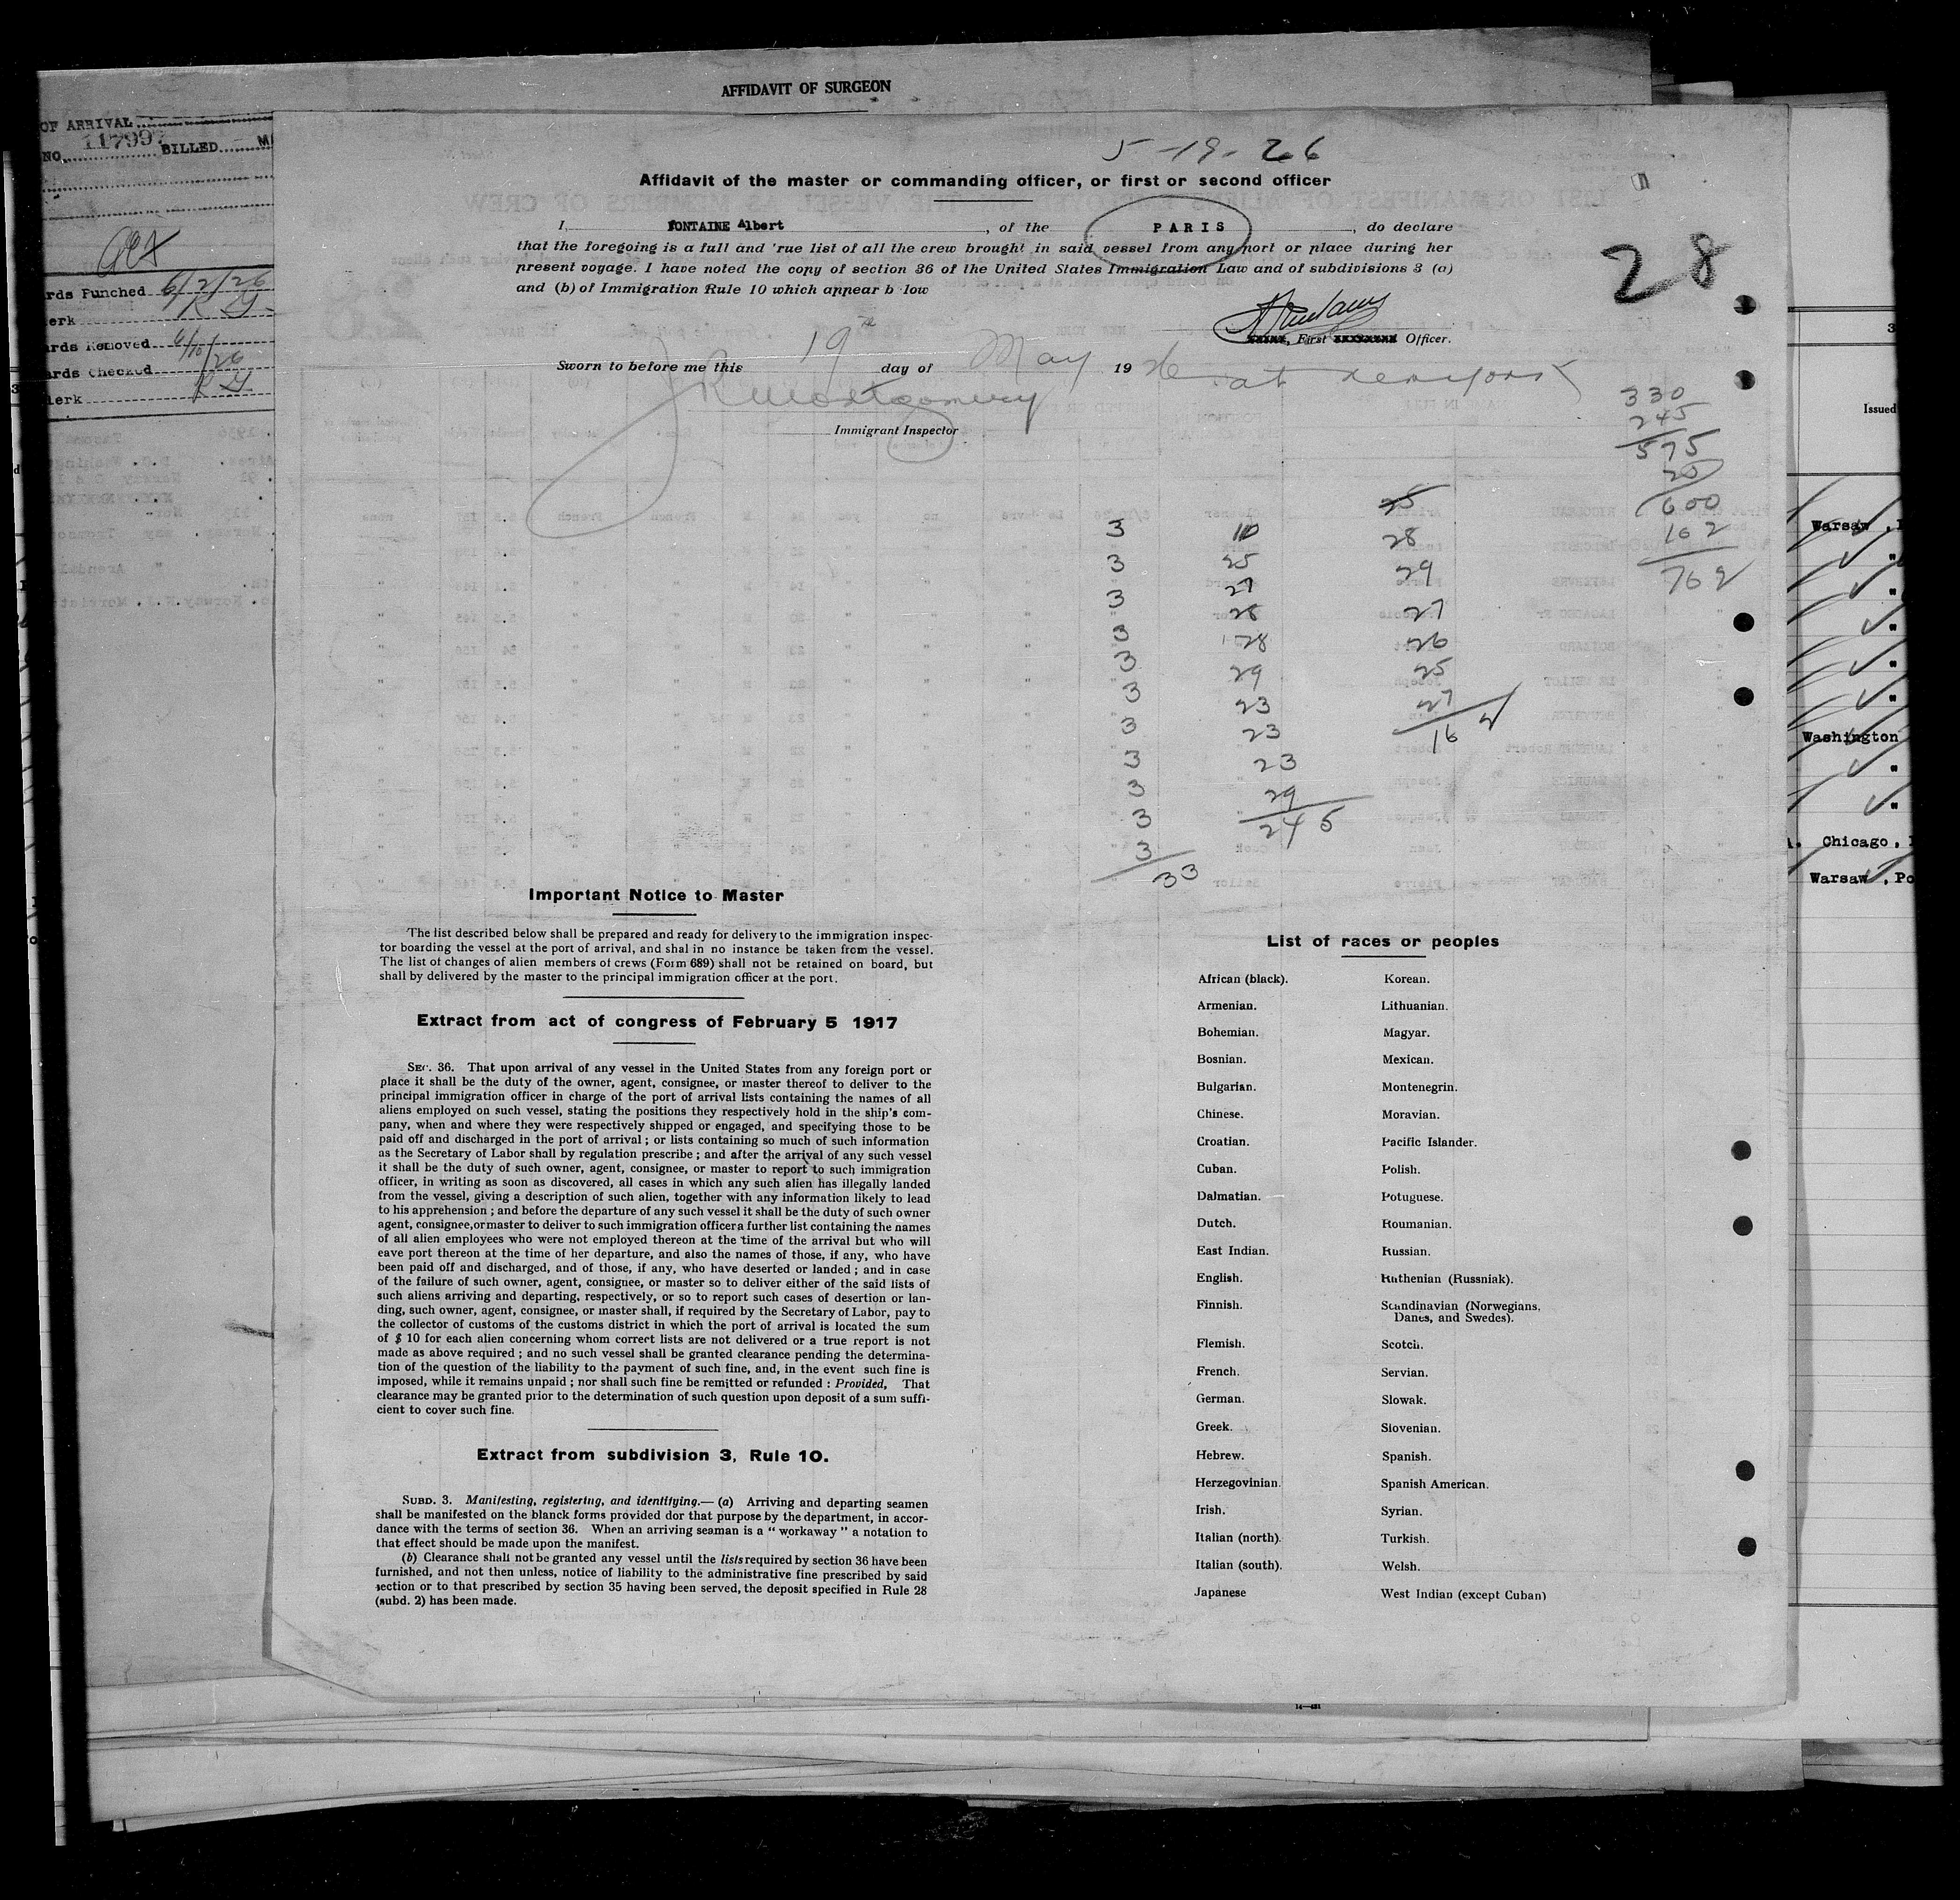 AFFIDAVIT OF SURGEON
OF ARRIVAL
NO. 117997 BILLED M
Cards Punched 6/2/26
lerk
rds Removed 6/10/26
ards Checked
lerk
5-19-26
Affidavit of the master or commanding officer, or first or second officer
I, FONTAINE Albert, of the PARIS, do declare
that the foregoing is a full and 'rue list of all the crew brought in said vessel from any port or place during her
present voyage. I have noted the copy of section 36 of the United States Immigration Law and of subdivisions 3 (a)
and (b) of Immigration Rule 10 which appear b low
28
, First Officer.
Sworn to before me this 19th day of May 1926 at
R Montgomery
Immigrant Inspector
330
245
575
600
162
762
3
3
3
3
3
3
3
3
3
3
3
33
10
25
27
28
28
29
23
23
23
29
245
25
28
29
27
26
25
27
162
Important Notice to Master
The list described below shall be prepared and ready for delivery to the immigration inspec-
tor boarding the vessel at the port of arrival, and shal in no instance be taken from the vessel.
The list of changes of alien members of crews (Form 689) shall not be retained on board, but
shall by delivered by the master to the principal immigration officer at the port.
Extract from act of congress of February 5 1917
SEC. 36. That upon arrival of any vessel in the United States from any foreign port or
place it shall be the duty of the owner, agent, consignee, or master thereof to deliver to the
principal immigration officer in charge of the port of arrival lists containing the names of all
aliens employed on such vessel, stating the positions they respectively hold in the ship's com-
pany, when and where they were respectively shipped or engaged, and specifying those to be
paid off and discharged in the port of arrival ; or lists containing so much of such information
as the Secretary of Labor shall by regulation prescribe ; and after the arrival of any such vessel
it shall be the duty of such owner, agent, consignee, or master to report to such immigration
officer, in writing as soon as discovered, all cases in which any such alien has illegally landed
from the vessel, giving a description of such alien, together with any information likely to lead
to his apprehension ; and before the departure of any such vessel it shall be the duty of such owner
agent, consignee, or master to deliver to such immigration officer a further list containing the names
of all alien employees who were not employed thereon at the time of the arrival but who will
eave port thereon at the time of her departure, and also the names of those, if any, who have
been paid off and discharged, and of those, if any, who have deserted or landed ; and in case
of the failure of such owner, agent, consignee, or master so to deliver either of the said lists of
such aliens arriving and departing, respectively, or so to report such cases of desertion or lan-
ding, such owner, agent, consignee, or master shall, if required by the Secretary of Labor, pay to
the collector of customs of the customs district in which the port of arrival is located the sum
of $ 10 for each alien concerning whom correct lists are not delivered or a true report is not
made as above required ; and no such vessel shall be granted clearance pending the determina-
tion of the question of the liability to the payment of such fine, and, in the event such fine is
imposed, while it remains unpaid ; nor shall such fine be remitted or refunded : Provided, That
clearance may be granted prior to the determination of such question upon deposit of a sum suffi-
cient to cover such fine.
Extract from subdivision 3, Rule 10.
SUBD. 3. Manifesting, registering, and identifying.— (a) Arriving and departing seamen
shall be manifested on the blanck forms provided dor that purpose by the department, in accor-
dance with the terms of section 36. When an arriving seaman is a " workaway " a notation to
that effect should be made upon the manifest.
(b) Clearance shall not be granted any vessel until the lists required by section 36 have been
furnished, and not then unless, notice of liability to the administrative fine prescribed by said
section or to that prescribed by section 35 having been served, the deposit specified in Rule 28
(subd. 2) has been made.
List of races or peoples
African (black). Korean.
Armenian. Lithuanian.
Bohemian. Magyar.
Bosnian. Mexican.
Bulgarian. Montenegrin.
Chinese. Moravian.
Croatian. Pacific Islander.
Cuban. Polish.
Dalmatian. Potuguese.
Dutch. Roumanian.
East Indian. Russian.
English. Ruthenian (Russniak).
Finnish. Scandinavian (Norwegians,
Danes, and Swedes).
Flemish. Scotch.
French. Servian.
German. Slowak.
Greek. Slovenian.
Hebrew. Spanish.
Herzegovinian. Spanish American.
Irish. Syrian.
Italian (north). Turkish.
Italian (south). Welsh.
Japanese West Indian (except Cuban)
3
Issued
Warsaw ,
"
"
"
"
"
Washington
"
"
Chicago ,
Warsaw , Po